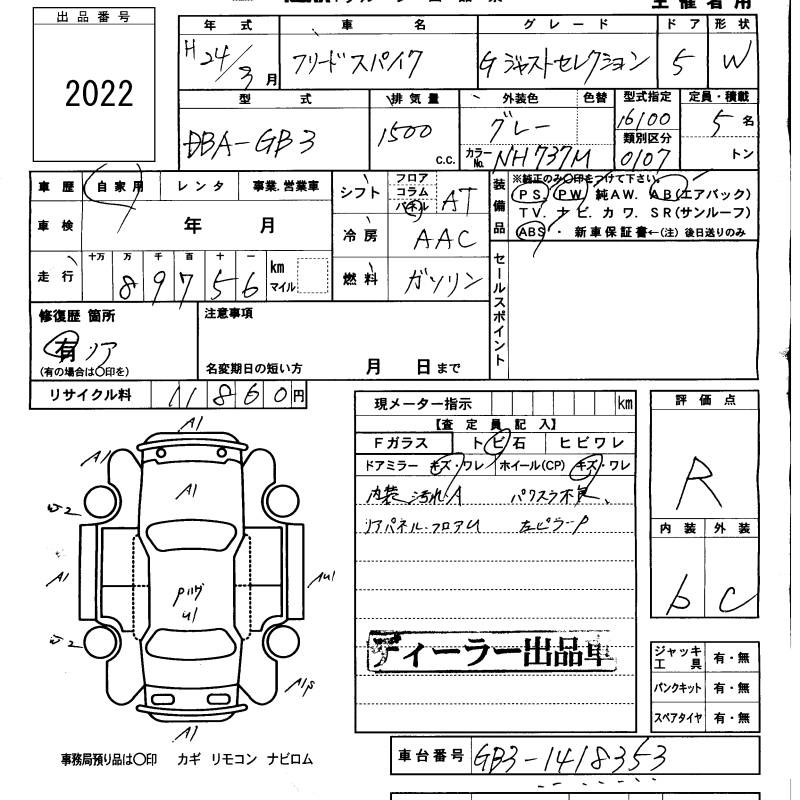 主催者用
出品番号
2022
年式 車名 グレード ドア 形状
H24/3月 フリードスパイク Gジャストセレクション 5 W
型式 排気量 外装色 色替 型式指定 定員・積載
DBA-GB3 1500 C.C. グレー 16100 5名
カラーNo. NH737M 類別区分 0107 トン
車歴 自家用 レンタ 事業.営業車
シフト フロア コラム パネル AT
装備品 ※純正のみ○印をつけて下さい。
PS. PW 純AW. AB(エアバック)
TV. ナビ. カワ. SR(サンルーフ)
ABS・ 新車保証書←(注) 後日送りのみ
車検 年 月
冷房 AAC
走行 十万 万 千 百 十 一 km マイル
89756
燃料 ガソリン
セールスポイント
修復歴 箇所
有 リア
(有の場合は○印を)
注意事項
名変期日の短い方 月 日まで
リサイクル料 11860円
現メーター指示 km
【査定員記入】
Fガラス トビ石 ヒビワレ
ドアミラー キズ・ワレ ホイール(CP) キズ・ワレ
内装 汚れA パワスラ不良、
リアパネル・フロアU 左ピラーP
ディーラー出品車
評価点
R
内装 外装
b C
ジャッキ工具 有・無
パンクキット 有・無
スペアタイヤ 有・無
A1
A1
A1
A1
U1
A1
事務局預り品は○印 カギ リモコン ナビロム
車台番号 GB3-1418353